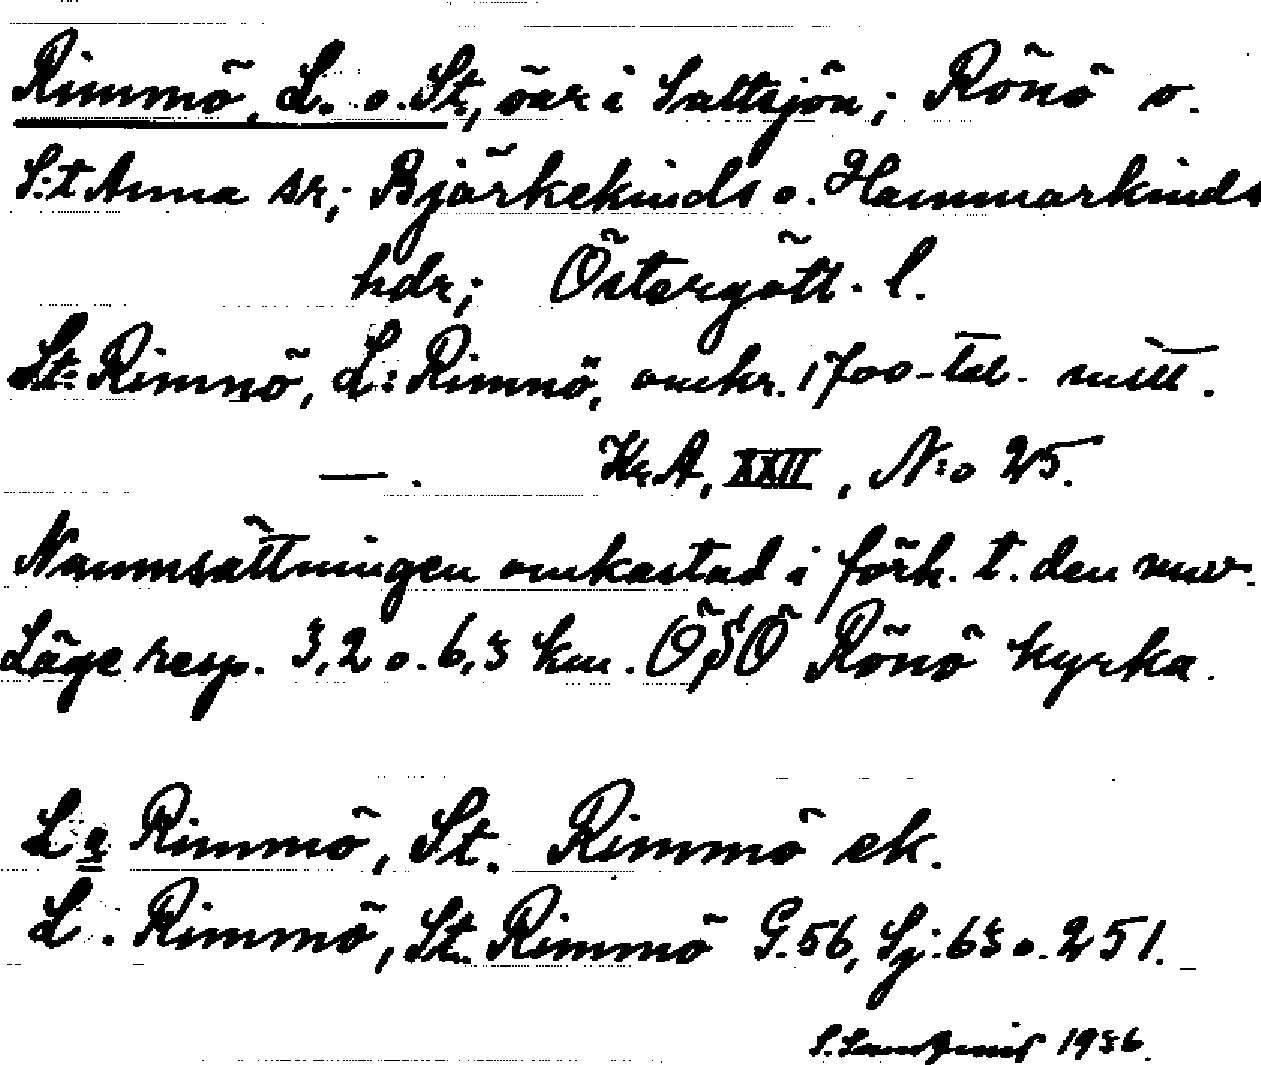 Rimmö, L. o. St., öar i Saltsjön; Rönö o.
S:t Anna sr; Björkekinds o. Hammarkinds
hdr; Östergötl. l.
St: Rimnö, L: Rimnö, omkr. 1700-tal. mitt.
—. KrA, XXII, N:o 25.
Namnsättningen omkastad i förh. t. den nuv.
Läge resp. 3,2 o. 6,3 km. ÖSÖ Rönö kyrka.
L. Rimmö, St. Rimmö ek.
L. Rimmö, St. Rimmö G. 56, Sj: 63 o. 251.
1936